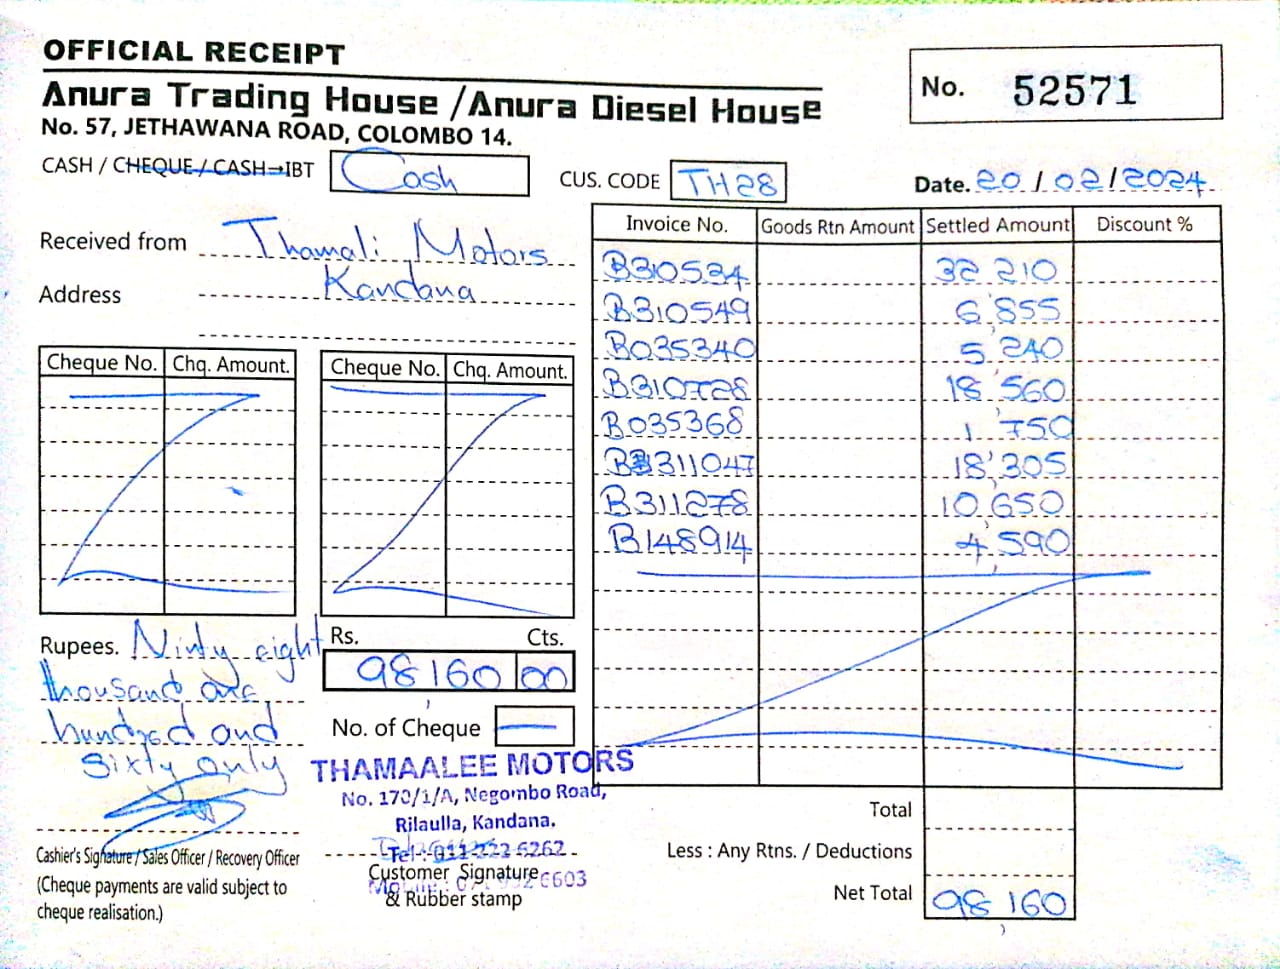 OFFICIAL RECEIPT
Anura Trading House / Anura Diesel House
No. 57, JETHAWANA ROAD, COLOMBO 14.
No. 52571
CASH / CHEQUE / CASH→IBT Cash
CUS. CODE TH28
Date. 20/02/2024
Received from Thamali Motors
Address Kandana
Cheque No. Chq. Amount.
Cheque No. Chq. Amount.
Invoice No. Goods Rtn Amount Settled Amount Discount %
B310534 32,210
B310549 6,855
B035340 5,240
B310728 18,560
B035368 1,750
B311047 18,305
B311278 10,650
B148914 4,590
Rupees. Ninty eight
thousand one
hundred and
sixty only
Rs. Cts.
98,160 00
No. of Cheque —
THAMAALEE MOTORS
No. 170/1/A, Negombo Road,
Rilaulla, Kandana.
Tel :- 011-222 6262
Customer Signature
& Rubber stamp
Cashier's Signature / Sales Officer / Recovery Officer
(Cheque payments are valid subject to
cheque realisation.)
Total
Less : Any Rtns. / Deductions
Net Total 98,160